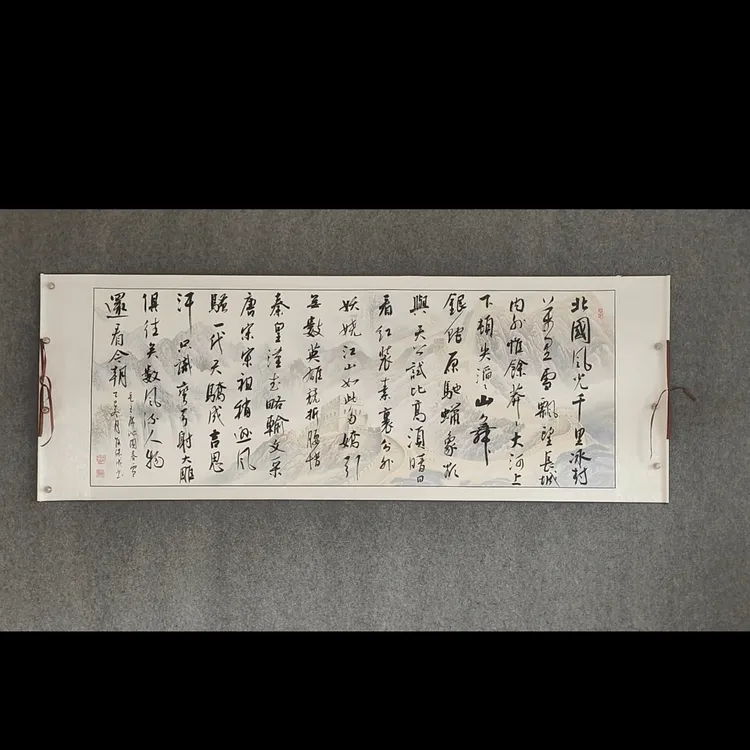 北國風光千里冰封
萬里雪飄望長城
内外惟餘莽々大河上
下頓失滔々山舞
銀蛇原馳蠟象欲
與天公試比高須晴日
看紅裝素裹分外
妖嬈江山如此多嬌引
無數英雄競折腰惜
秦皇漢武略輸文采
唐宗宋祖稍遜風
騷一代天驕成吉思
汗只識彎弓射大雕
俱往矣數風流人物
還看今朝
毛主席沁園春雪